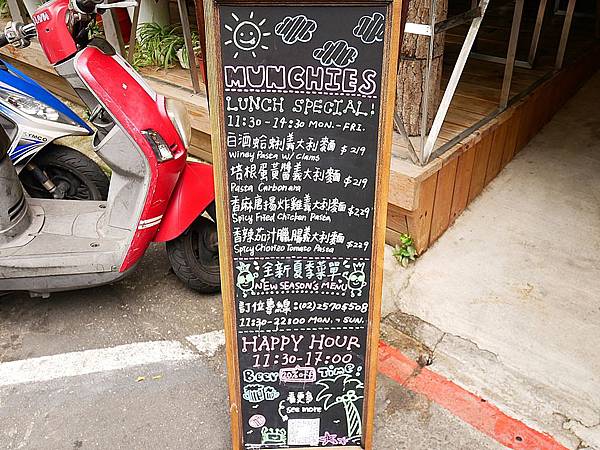 MUNCHIES
LUNCH SPECIAL!
11:30 - 14:30 MON.- FRI.
白酒蛤蜊義大利麵 $219
Winey Pasta w/ Clams
培根蛋黃醬義大利麵 $219
Pasta Carbonara
香麻唐揚炸雞義大利麵 $229
Spicy Fried Chicken Pasta
香辣茄汁臘腸義大利麵 $229
Spicy Chorizo Tomato Pasta
全新夏季菜單
NEW SEASON'S MENU
訂位專線:(02)25706508
11:30-22:00 MON.~SUN.
HAPPY HOUR
11:30-17:00
Beer 20%off Time!
看更多
see more
KYMCO